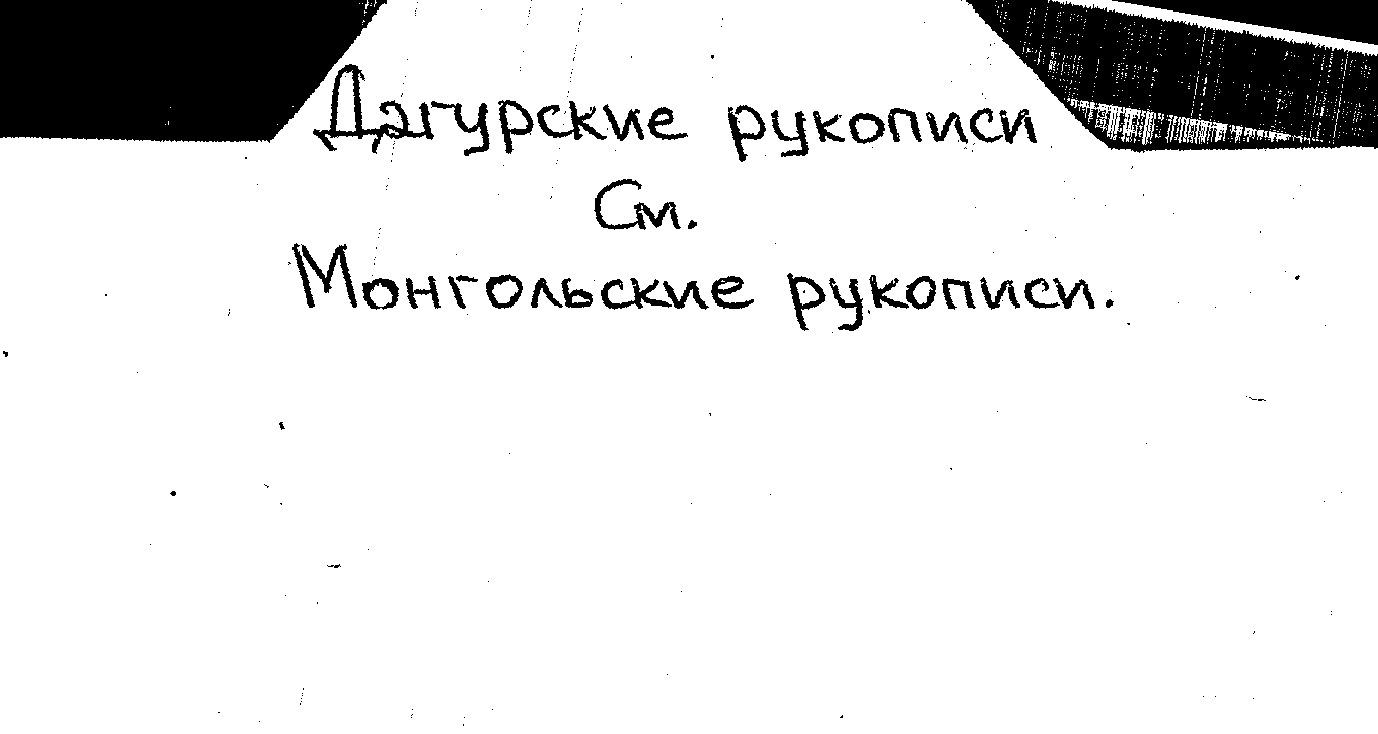 Дагурские рукописи
См.
Монгольские рукописи.